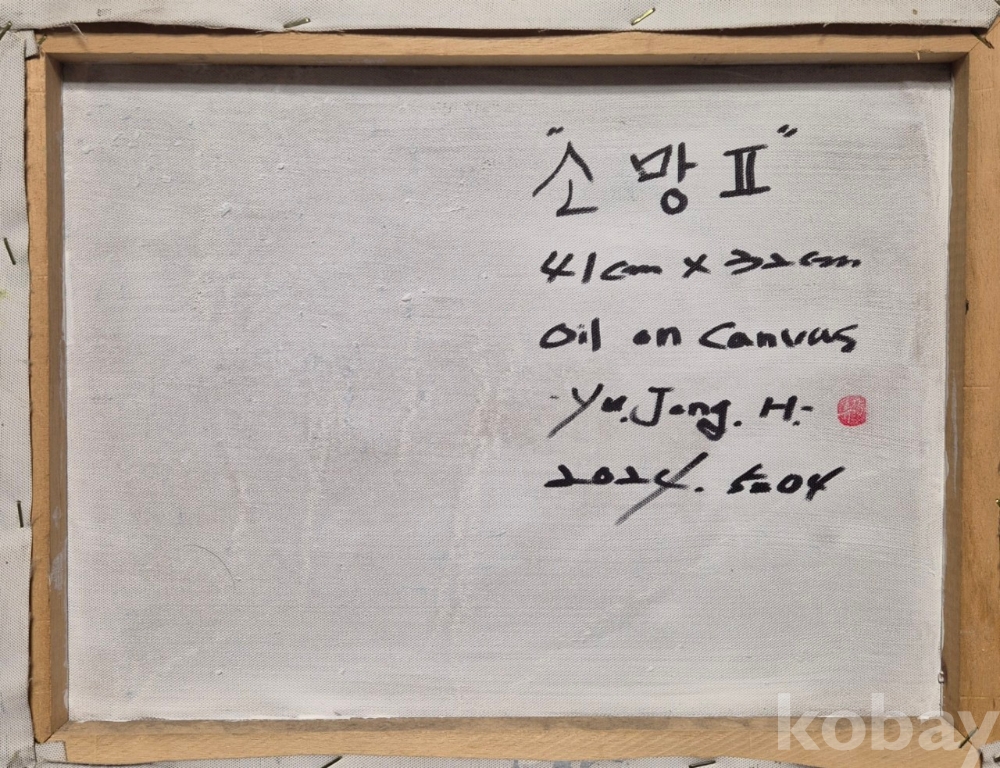 "소망 Ⅲ"
41cm x 32cm
Oil on Canvas
Yu. Jong. H.
2024.
kobay